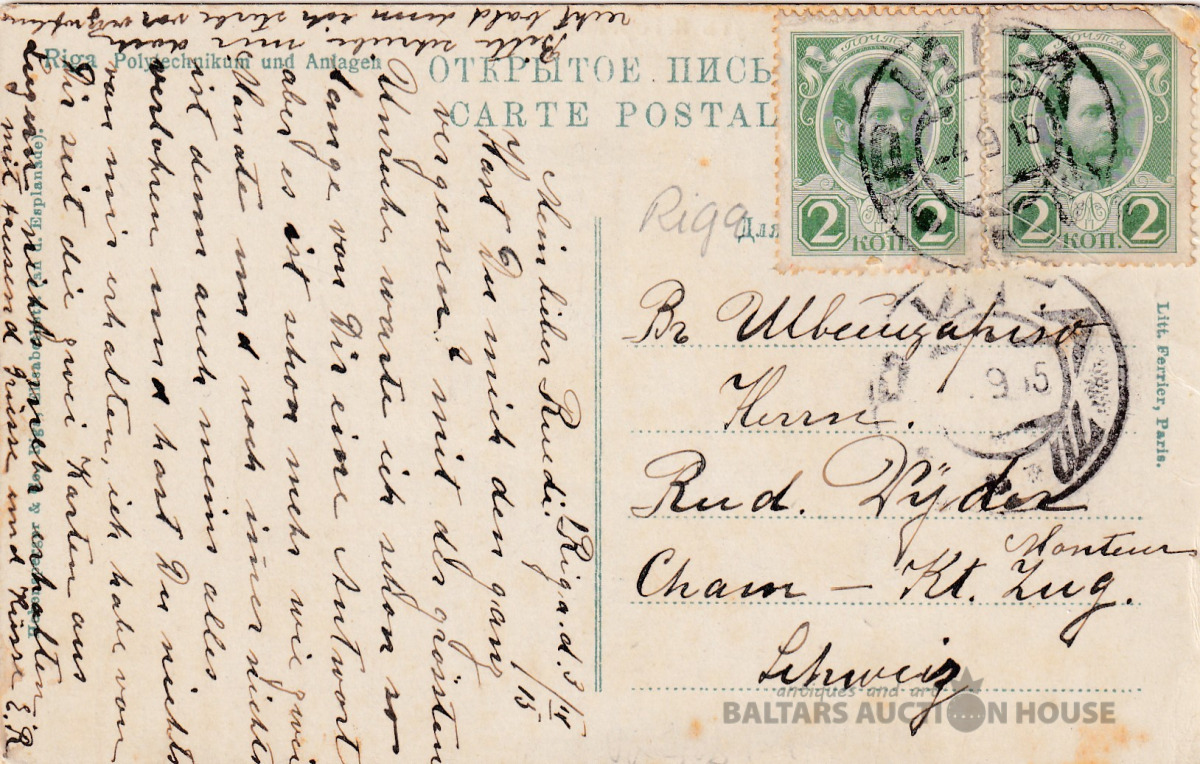 Riga Polytechnikum und Anlagen
ОТКРЫТОЕ ПИСЬ
CARTE POSTAL
Для
ПОЧТА
2 2
КОП.
ПОЧТА
2 2
КОП.
Riga
Riga. d. 3/IV 15
Mein lieber Ruedi!
Hast Du mich den ganz
vergessen? mit der grössten
Unruhe warte ich schon so
lange von Dir eine Antwort
aber es ist schon mehr wie zwei
Monate und noch immer nichts
ist denn auch meins alles
verlohren und hast Du nichts
von mir erhalten, ich habe von
Dir seit die zwei Karten aus
nichts mehr erhalten
mit tausend Grüsse und Küsse E.R
Bitte schreibe mir doch
recht bald denn ich sterbe vor
Въ Швейцарiю
Herrn.
Rud. Wyder
Monteur
Cham – Kt. Zug.
Schweiz
Litt. Ferrier, Paris.
antiques and art
BALTARS AUCTION HOUSE